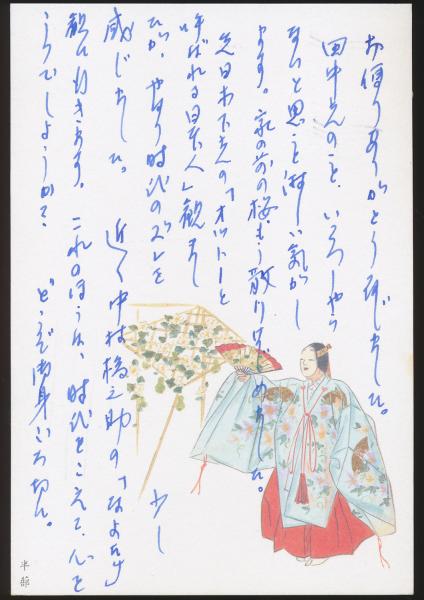 お便りありがとう存じました。
田中先のこと、いろいろやら
ないと思うこと淋しい気がし
ます。家の前の桜、もう散りはじめました。
先日木下先の「オットーと
呼ばれる日本人」観まし
たが、やはり時代のズレを
感じました。　近く中村橋之助の「なよたけ」
観に行きます。　これのほうは、時代をこえて、心を
うつでしょうか？　どうぞ御身いとおしみ
少し
半蔀